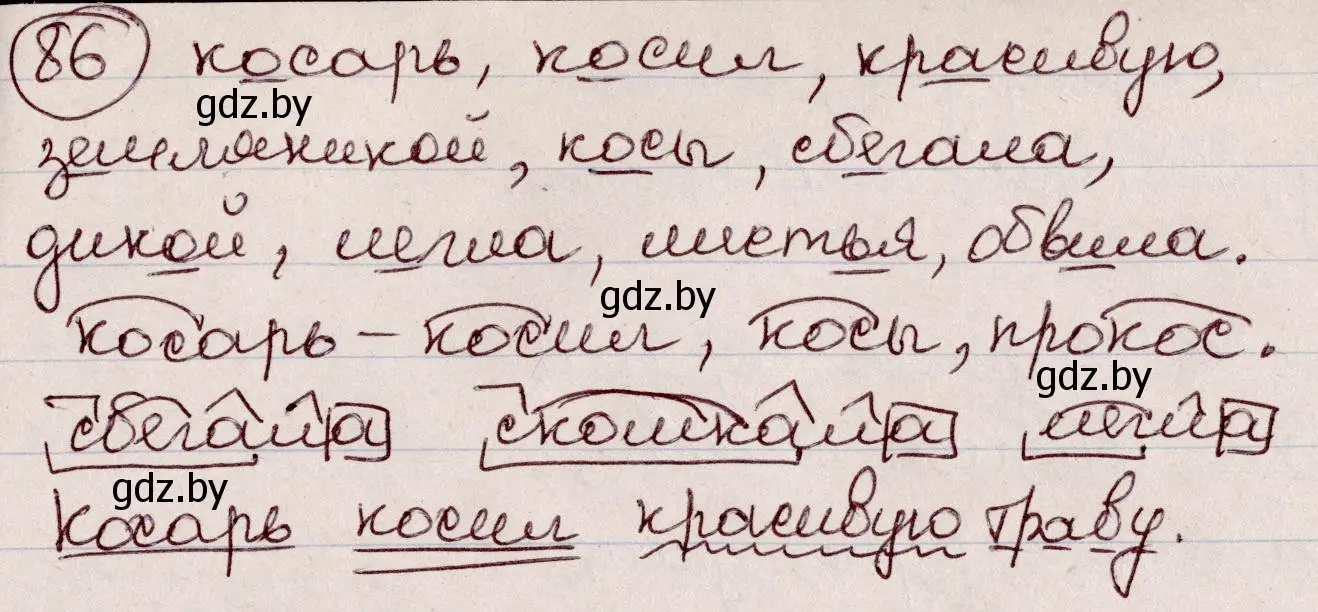 86 косарь, косил, красивую,
gdz.by
земляникой, косы, сбегала,
дикой, легла, листья, обвила.
gdz.by
косарь – косил, косы, прокос.
gdz.by
сбегала скомкала легла
gdz.by
косарь косил красивую траву.